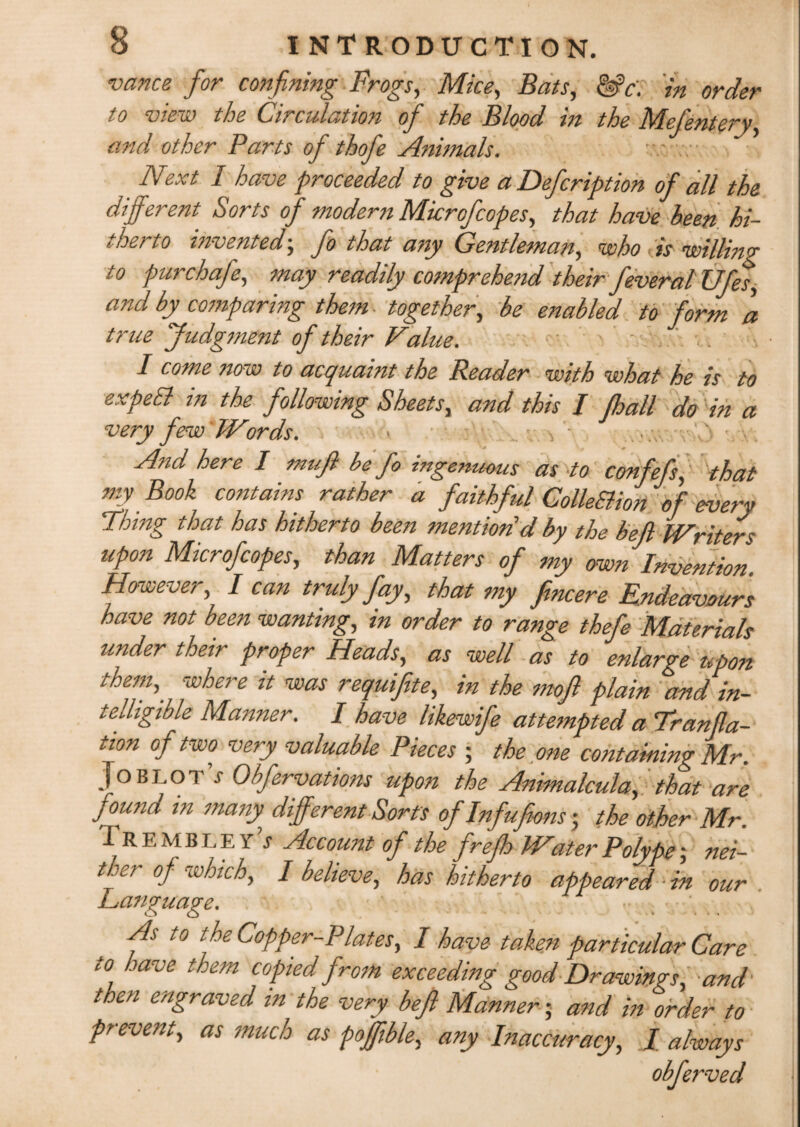 8 INTRODUCTION.
vance for confining Frogs, Mice, Bats, &c. in order
to view the Circulation of the Blood in the Meſentery,
and other Parts of thoſe Animals.
Next I have proceeded to give a Deſcription of all the
different Sorts of modern Microſcopes, that have been hi-
therto invented; ſo that any Gentleman, who is willing
to purchaſe, may readily comprehend their ſeveral Uſes,
and by comparing them together, be enabled to form a
true Judgment of their Value.
I come now to acquaint the Reader with what he is to
expect in the following Sheets, and this I ſhall do in a
very few Words.
And here I muſt be ſo ingenuous as to confeſs, that
my Book contains rather a faithful Collection of every
Thing that has hitherto been mention'd by the beſt Writers
upon Microſcopes, than Matters of my own Invention.
However, I can truly ſay, that my ſincere Endeavours
have not been wanting, in order to range theſe Materials
under their proper Heads, as well as to enlarge upon
them, where it was requiſite, in the moſt plain and in-
telligible Manner. I have likewiſe attempted a Tranſla-
tion of two very valuable Pieces ; the one containing Mr.
JOBLOT's Obſervations upon the Animalcula, that are
found in many different Sorts of Infuſions; the other Mr.
TREMBLEY's Account of the freſh Water Polype; nei-
ther of which, I believe, has hitherto appeared in our
Language.
As to the Copper-Plates, I have taken particular Care
to have them copied from exceeding good Drawings, and
then engraved in the very beſt Manner; and in order to
prevent, as much as poſſible, any Inaccuracy, I always
obſerved